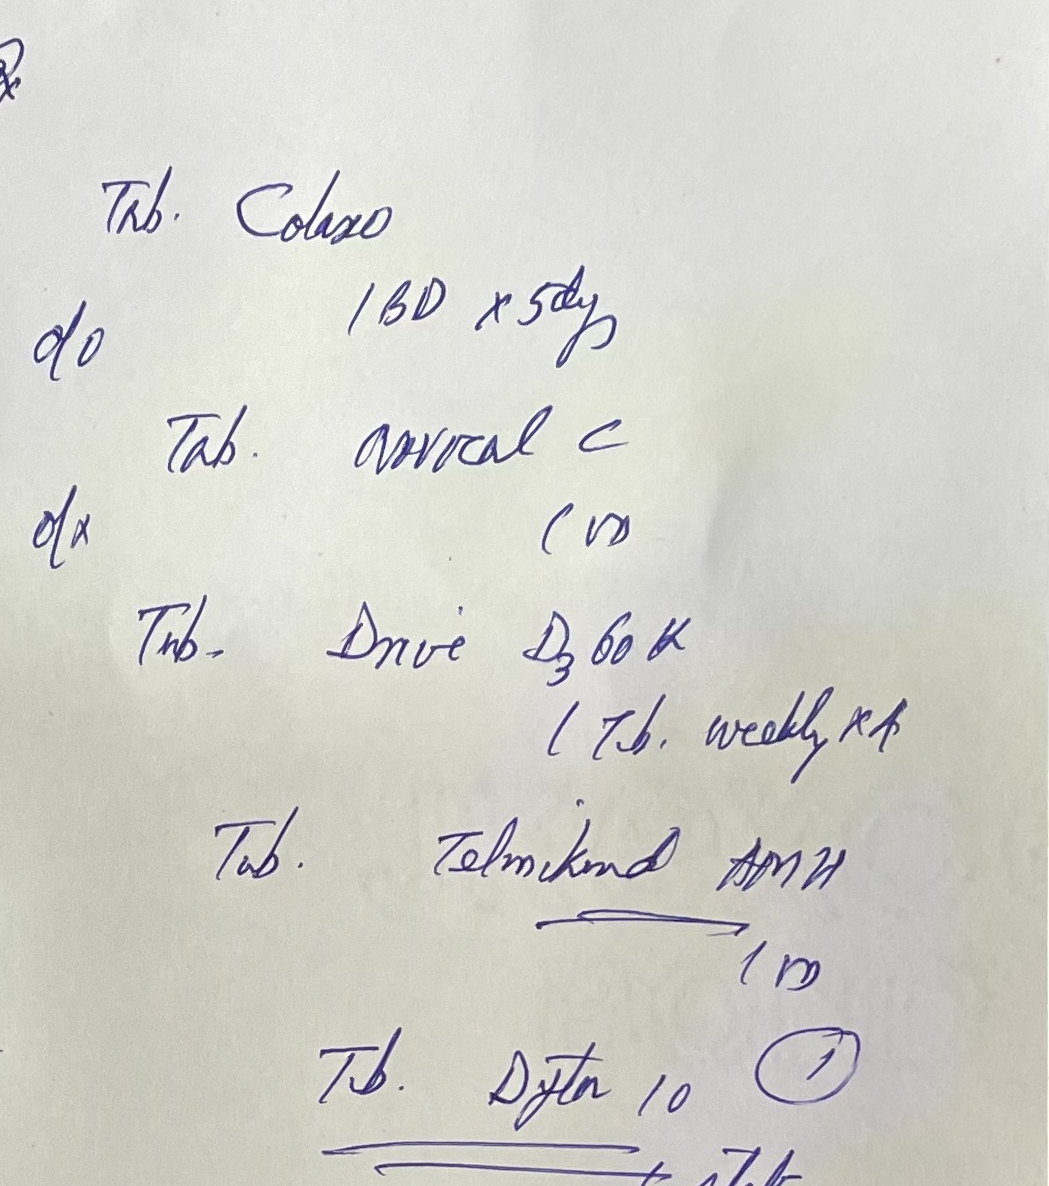 Rx
Tab. Colaxo
1 BD x 5dys
d/o
Tab. Novocal C
d/x
Tab. Drive D3 60 K
1 Tb. weekly x
Tab. Telmikind AMH
Tb. Dytor 10 1